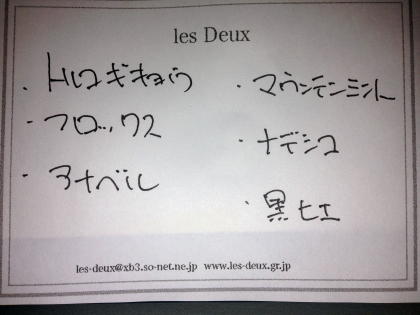 les Deux
・トルコギキョウ
・フロックス
・アナベル
・マウンテンミント
・ナデシコ
・黒ヒエ
les-deux@xb3.so-net.ne.jp www.les-deux.gr.jp